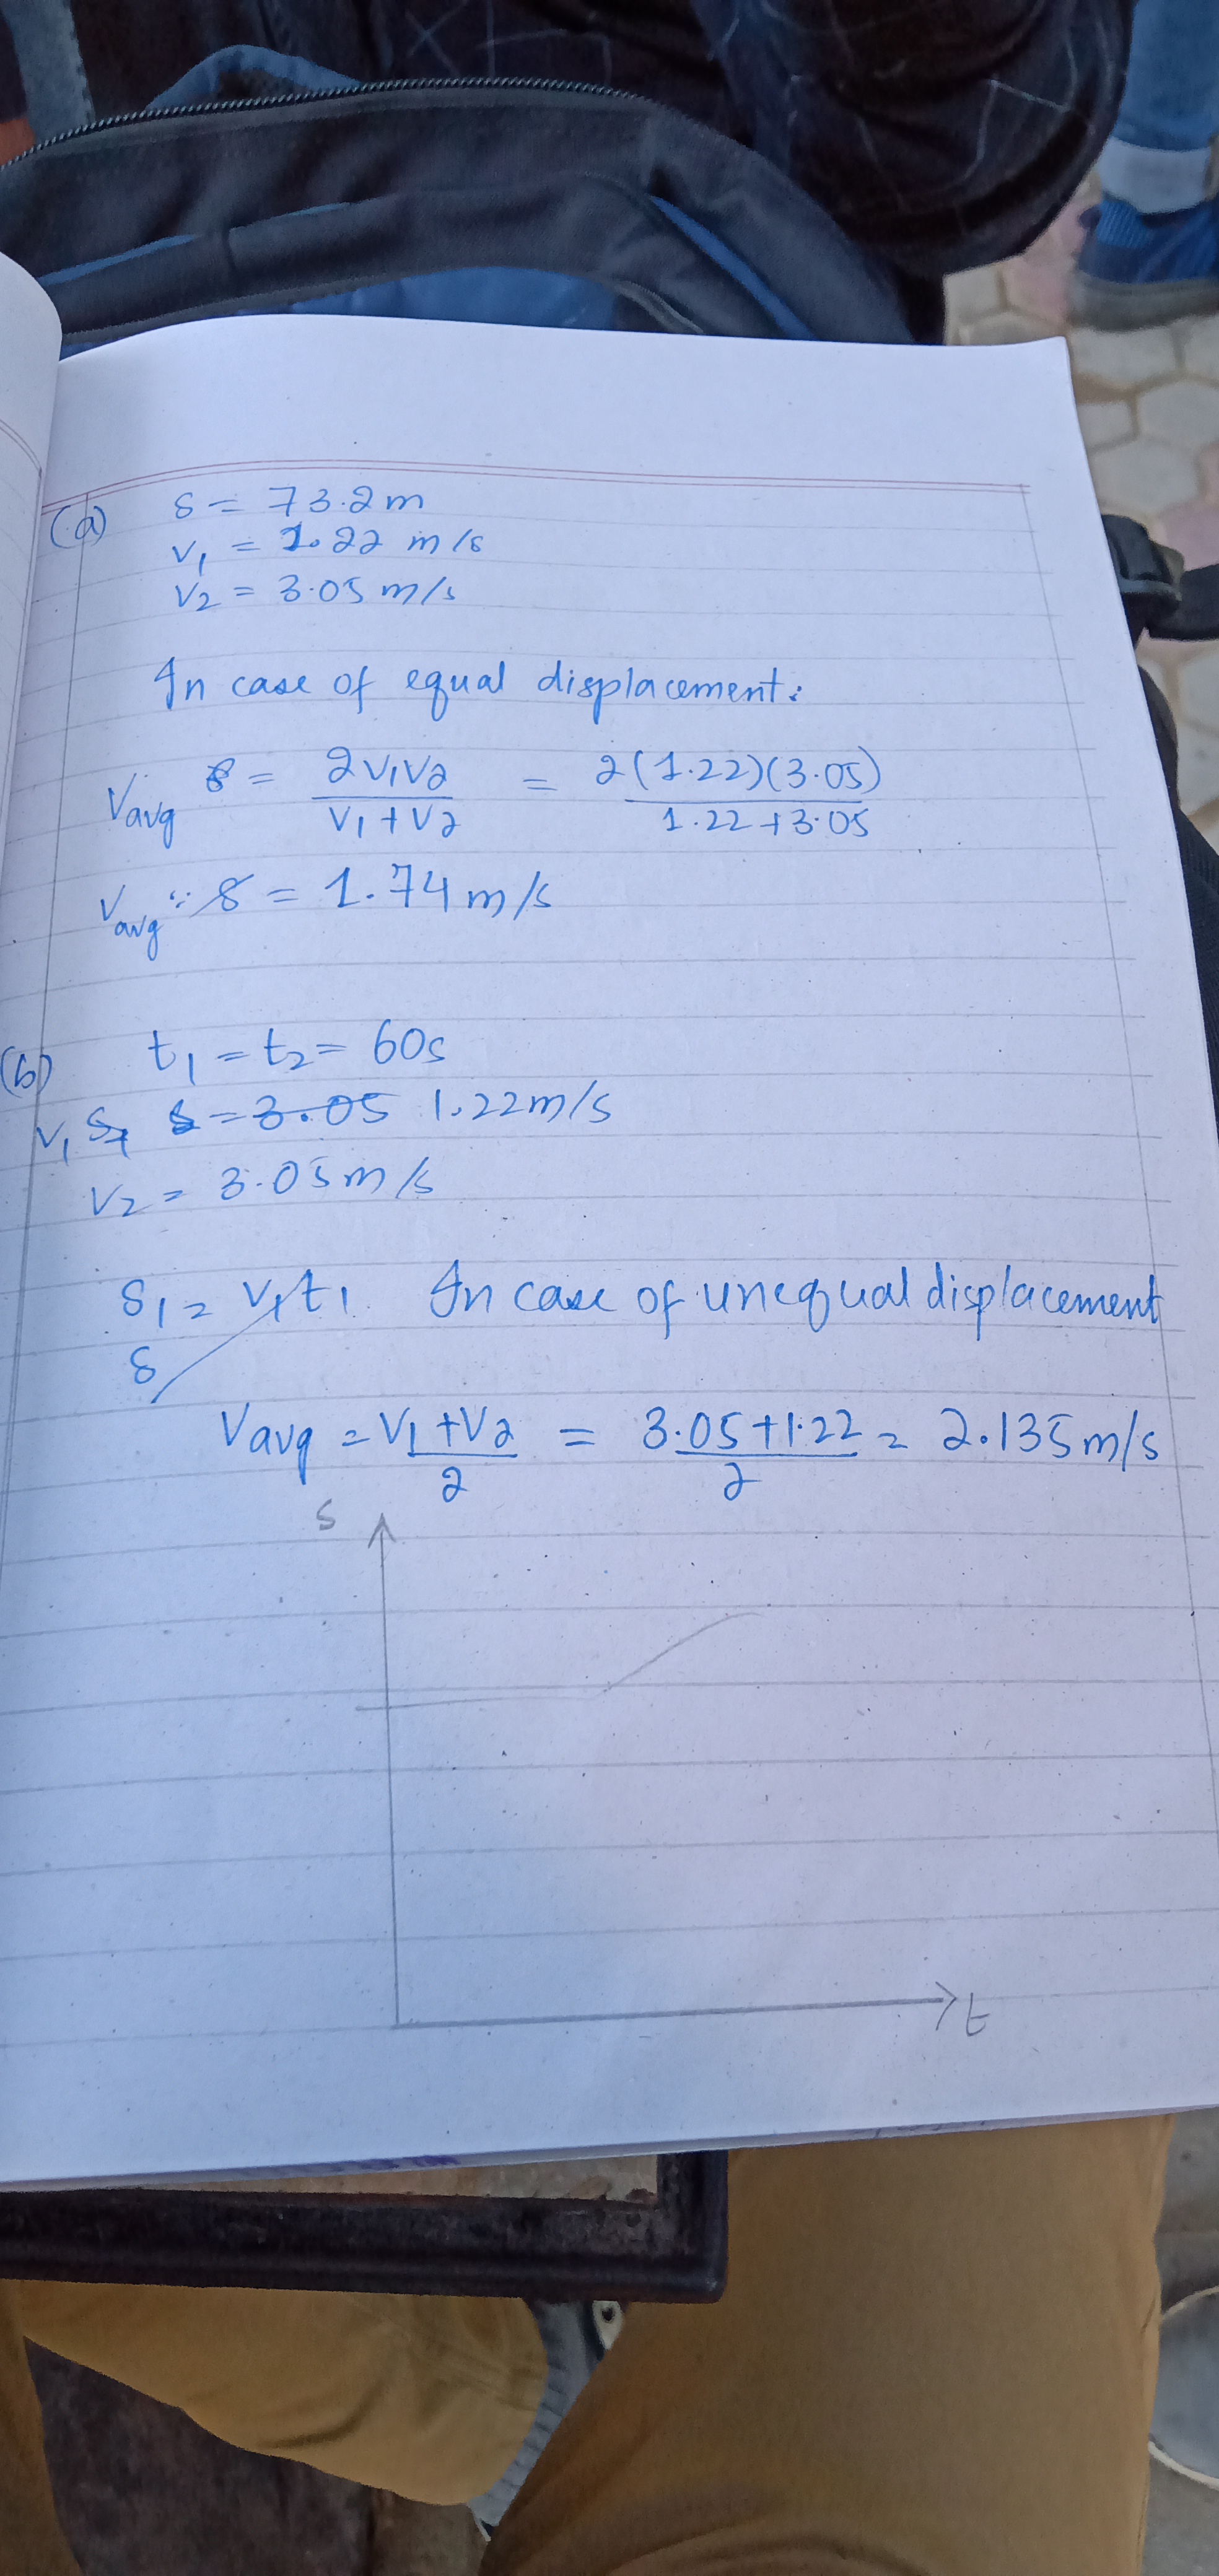 (a) s = 73.2m
v₁ = 1.22 m/s
v₂ = 3.05 m/s
In case of equal displacement:
Vavg = 2v₁v₂ / v₁+v₂ = 2(1.22)(3.05) / 1.22+3.05
Vavg = 1.74 m/s
(b) t₁ = t₂ = 60s
v₁ = 3.05 1.22m/s
v₂ = 3.05 m/s
s₁ = v₁t₁ In case of unequal displacement
s
Vavg = v₁+v₂ / 2 = 3.05+1.22 / 2 = 2.135 m/s
s
t